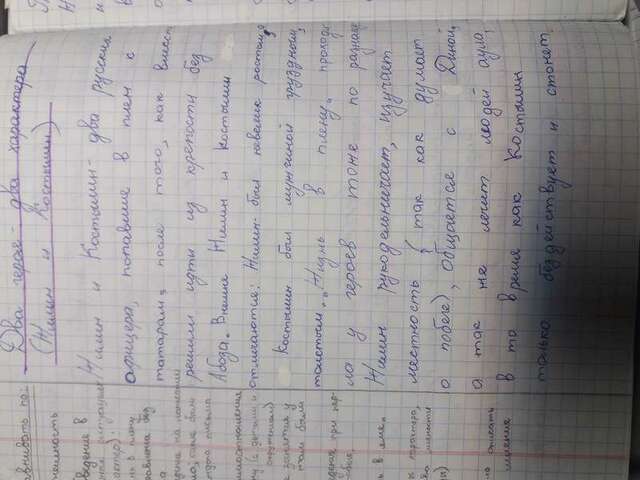 Два героя - два характера
(Жилин и Костылин)
Жилин и Костылин - два русских
афицера, попавшие в плен к
татарам, после того, как вместе
решили идти из крепости без
Абоза. Внешне Жилин и Костылин
отличаются: Жилин - был невелик ростом,
Костылин был мужчиной грузным,
толстым. Жизнь в плену проходи
ла у героев тоже по разному
Жилин рукодельничает, изучает
местность (так как думает
о побеге), общается с Диной,
а так же лечит людей аула,
в то время как Костылин
только бездействует и стонет.
авнивать по:
нешность
ведение в
ситуации
в плену
без
письма
(с детьми и
окружением)
у
там были
ведения при
побеге,
ь в яме.
характера,
описать
мнение